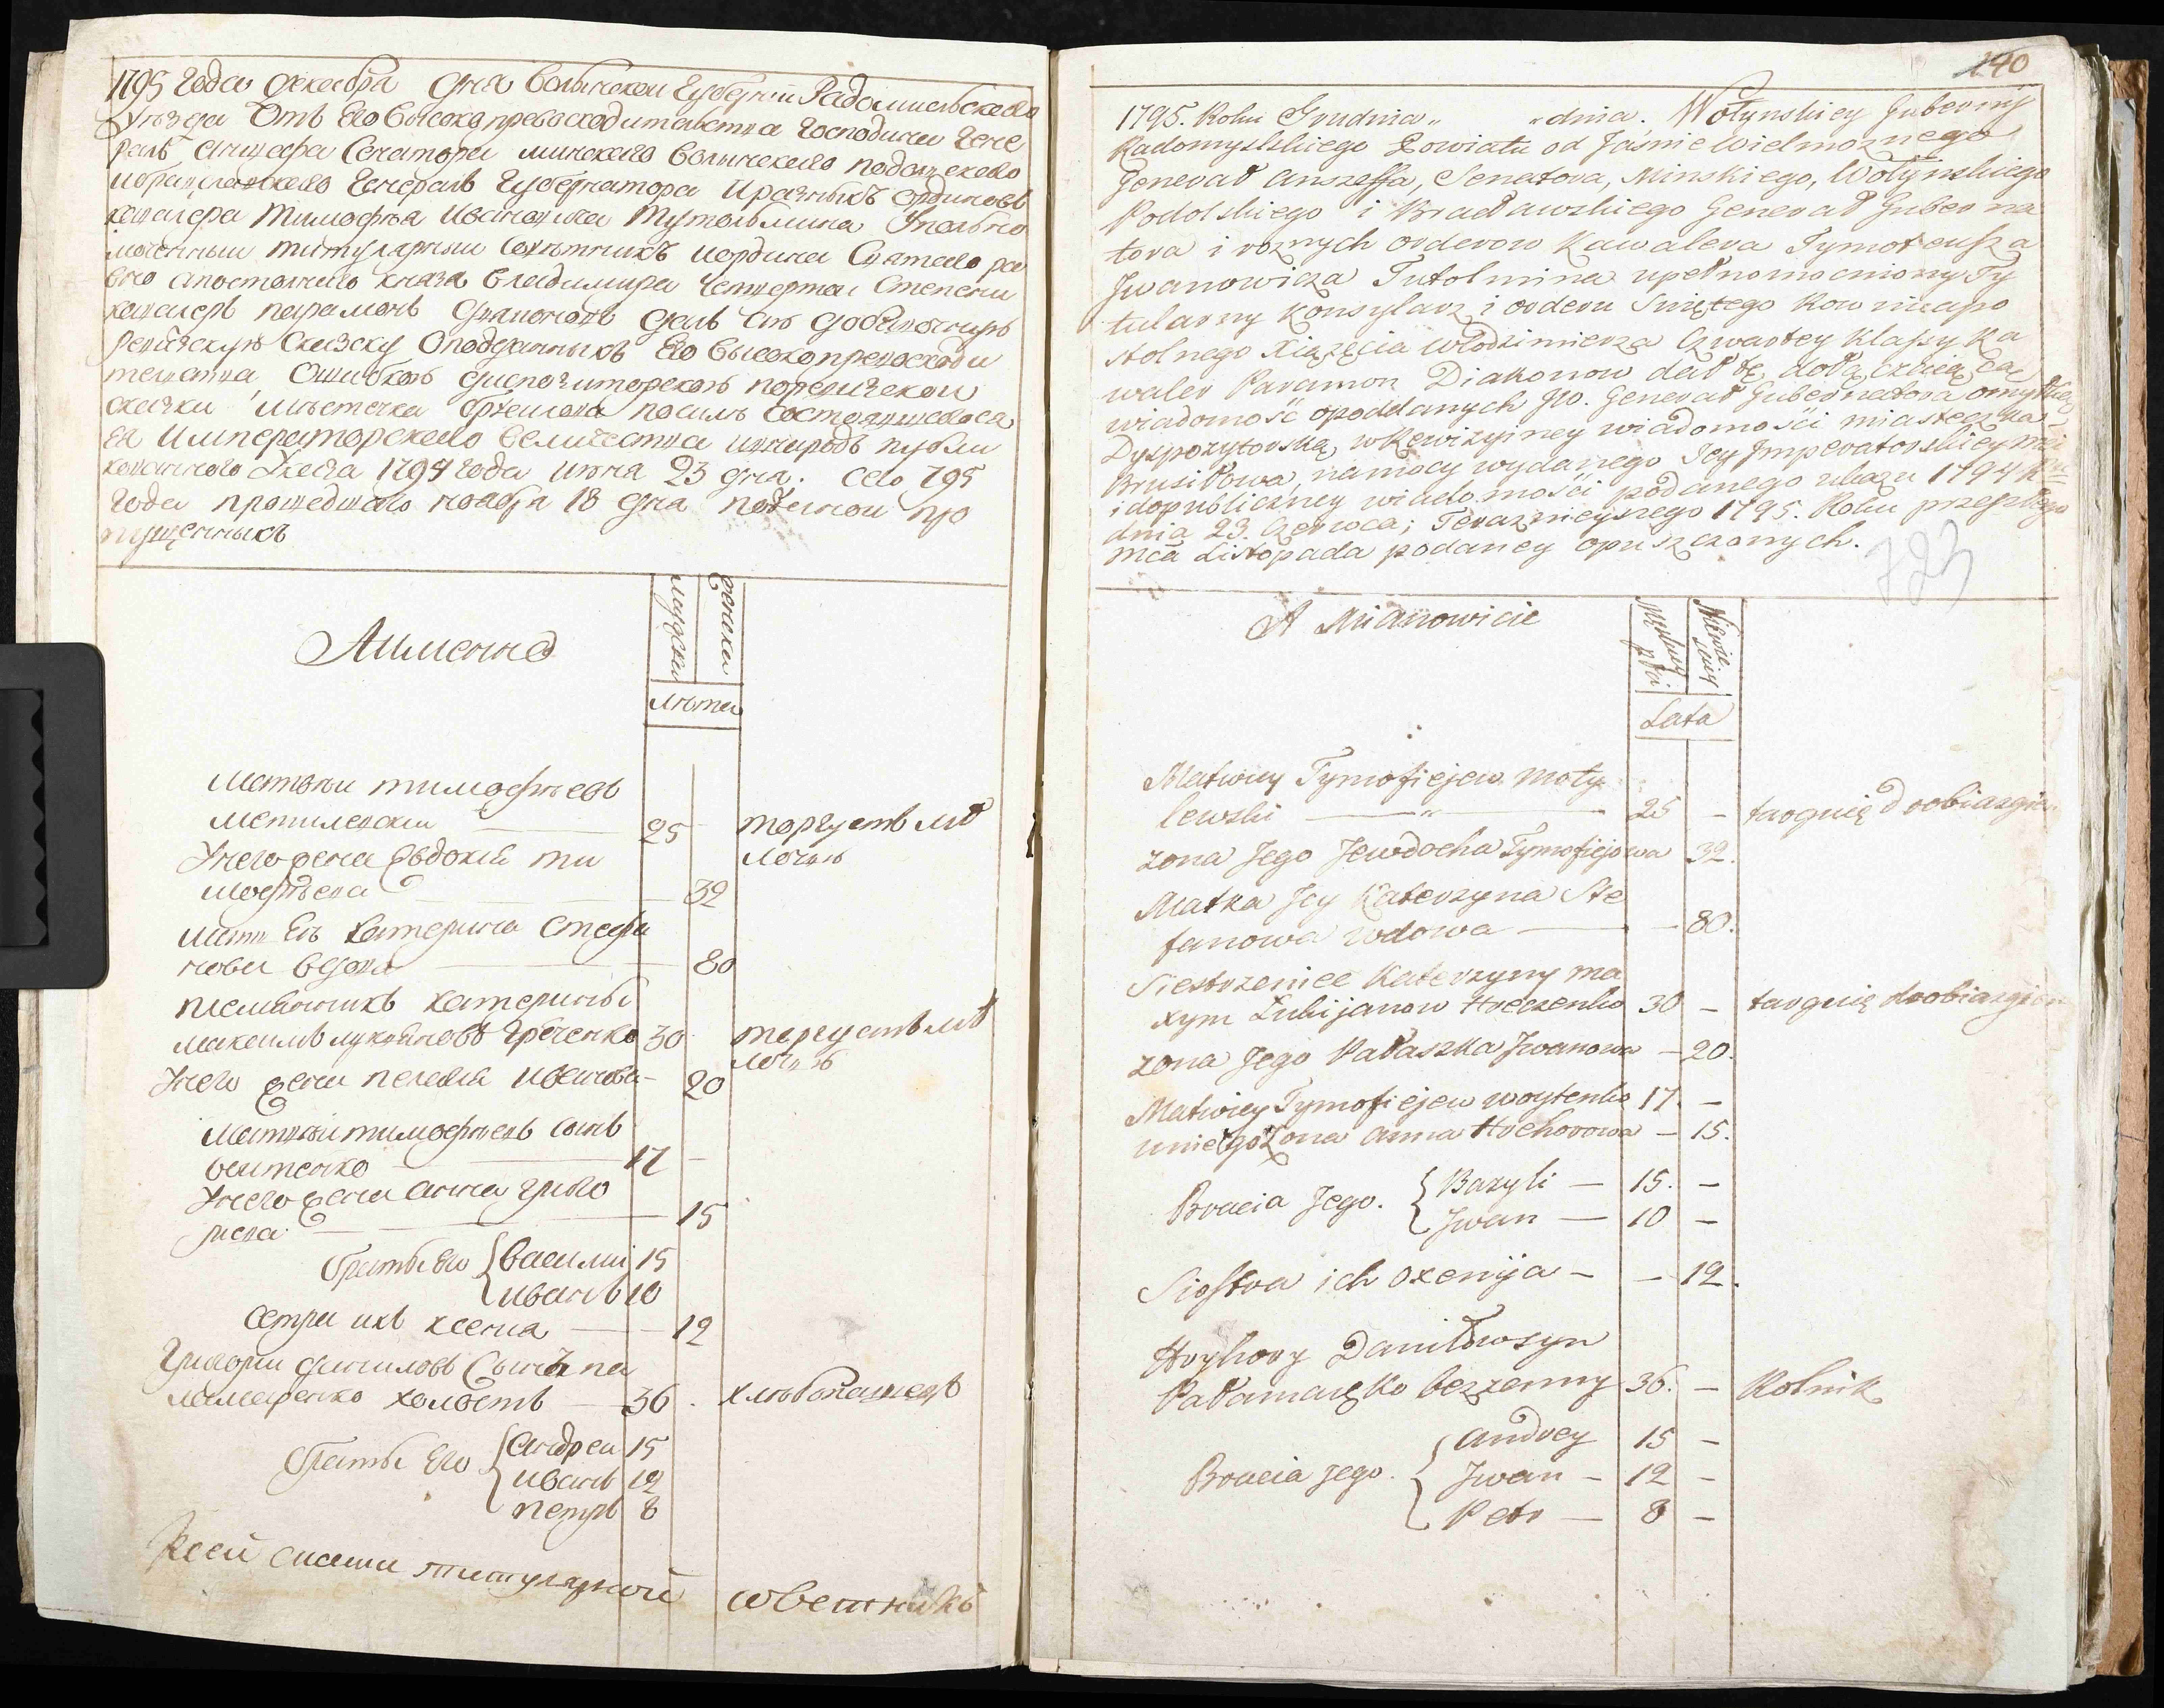 1795 года декабря дня Волынской Губернии Радомисльскаго
Уезда Отъ Его Высокопревосходительства Господина Гене
ралъ аншефа Сенатора минскаго волынскаго подолскаго
ибрацлавскаго Генералъ Губернатора Иразныхъ ординовъ
кавалера Тимофея Ивановича Тутольмина Уполно
моченный титулярный советникъ иордина Святаго ра
вно апостолнаго князя владимира четвертой Степени
кавалеръ парамонъ дияконовъ далъ сию добавочную
ревизскую Скаску Оподданныхъ Его Высокопревосходи
телства Ошибкою диспозиторскою поревизской
скаски местечка брусилова посилъ состоявшегося
Ея Императорскаго величества ивнародъ публи
кованнаго Указа 1794 года июня 23 дня. Сего 795
года прошедшаго ноября 18 дня поданной про
пущенныхъ
Аименно
мужска
женска
лета
матвей тимофеевъ
метилевски 25 торгуетъ ме
лочью
Унего жена Евдокия ти
мофеева 32
мать Ея катерина стефа
нова вдова 80
племянникъ катерины
максимъ лукяновъ греченко 30 торгуетъ ме
лочью
Унего жена пелагия иванова 20
матвей тимофеевъ сынъ
войтенко 17
Унего жена анна григо
риева 15
братья Его { василий 15
иванъ 10
сестра ихъ ксения 12
григорий даниловъ Сынъ па
ламаренко холостъ 36 хлебопашецъ
братья Его { андрей 15
иванъ 12
петръ 8
Ксей скаски титулярной советникъ
240
1795. Roku Grudnia „ „dnia. Wołynskiey Guberniy
Radomyslskiego Powiatu od Jaśnie Wielmoznego
Generał anszeffa, Senatora, Minskiego, Wołynskiego
Podolskiego i Bracławskiego Generał Guberna
tora i roznych orderow Kawalera Tymoteusza
Jwanowicza Tutolmina upełnomocniony Ty
tularny Konsylarz i orderu Swiętego Rowniuapo
stolnego Xiążęcia Włodzimierza Czwartey Klassy Ka
waler Paramon Diakonow dał tę dołączaiącą
wiadomość opoddanych JW. Generał Gubernatora omyłką
Dyspozytorską, wRewizyiney wiadomości miasteczka
Brusiłowa, namocy wydanego Jey Jmperatorskiey Mści
idopubliczney wiadomości podanego ukazu 1794 Ru
dnia 23. Czerwca; Terazznieyszego 1795. Roku przeszłego
mca Listopada podaney opuszczonych.
723
A Mianowicie
Męskiey płci
Niewie
sciey
Lata
Matwiey Tymofiejew Moty
lewski „ 25 - targuię drobiazgiem
zona Jego Jewdocha Tymofiejowa 32.
Matka Jey Katerzyna Ste
fanowa wdowa - 80.
Siestrzeniec Katerzyny Ma
xym Łukijanow Hreczenko 30 - targuię drobiazgiem
zona Jego Pałaszka Jwanowa - 20.
Matwiey Tymofiejew woytenko 17. -
uniego zona anna Hrehorowa - 15.
Bracia Jego. { Bazyli - 15. -
Jwan - 10 -
Siostra ich Oxenija - - 12.
Hryhory Daniłow syn
Pałamaręko bezzenny 36. - Rolnik
Bracia jego. { andrey 15 -
Jwan - 12 -
Petr - 8 -